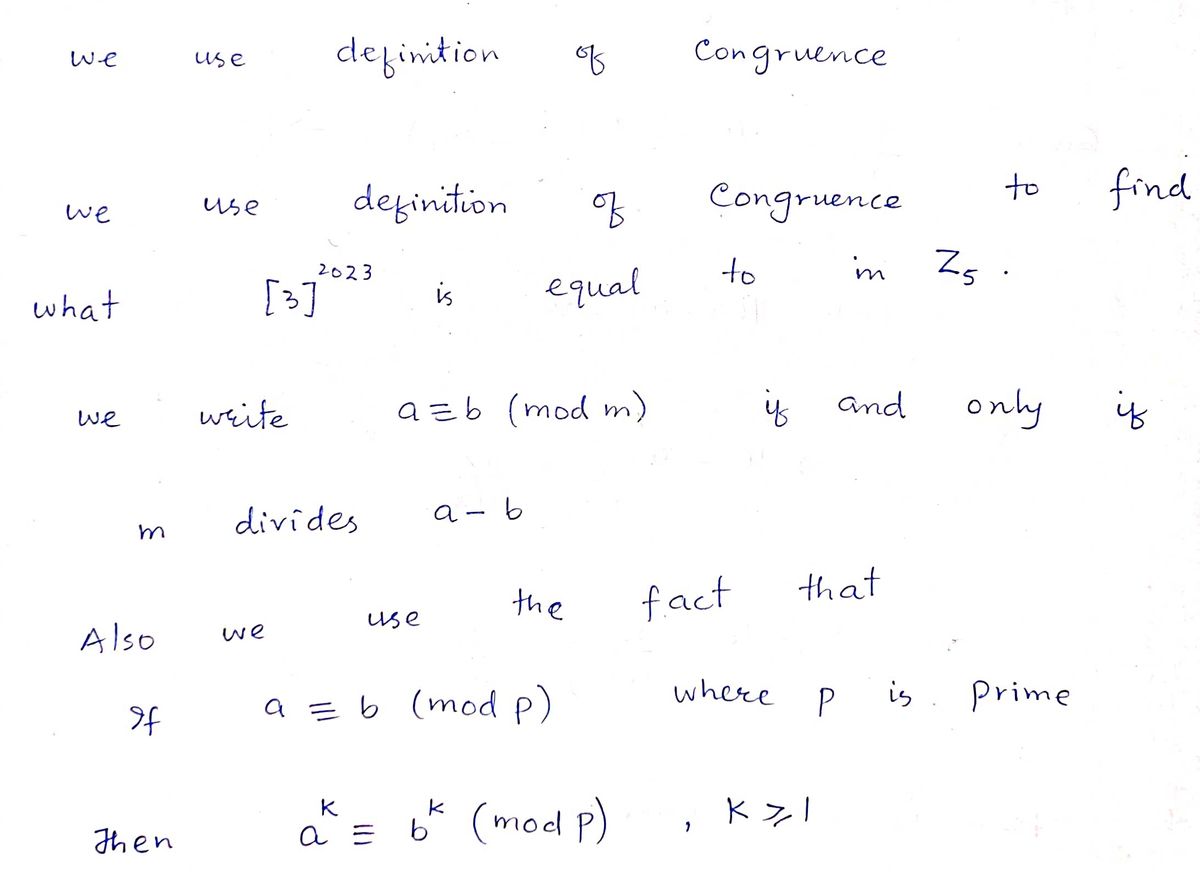 we use definition of Congruence
we use definition of Congruence to find
what [3]²⁰²³ is equal to in Z₅ .
we write a ≡ b (mod m) if and only if
m divides a - b
Also we use the fact that
If a ≡ b (mod p) where p is prime
Then aᵏ ≡ bᵏ (mod p) , K ⩾ 1